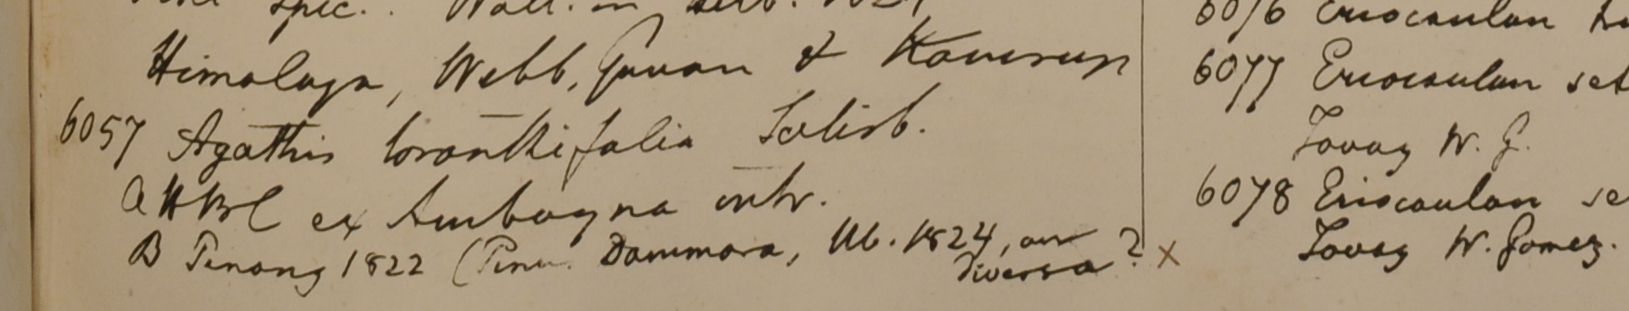 spec. Wall. in herb. 1821
Himalaya, Webb, Govan & Kamrup
6057 Agathis loranthifolia Salisb.
a HBC ex Amboyna intr.
B Penang 1822 (Pinu. Dammara, Ub. 1824, an
diversa?
6076 Eriocaulon
6077 Eriocaulon set
Tavoy W. G.
6078 Eriocaulon se
Tavoy W. Gomez.
X